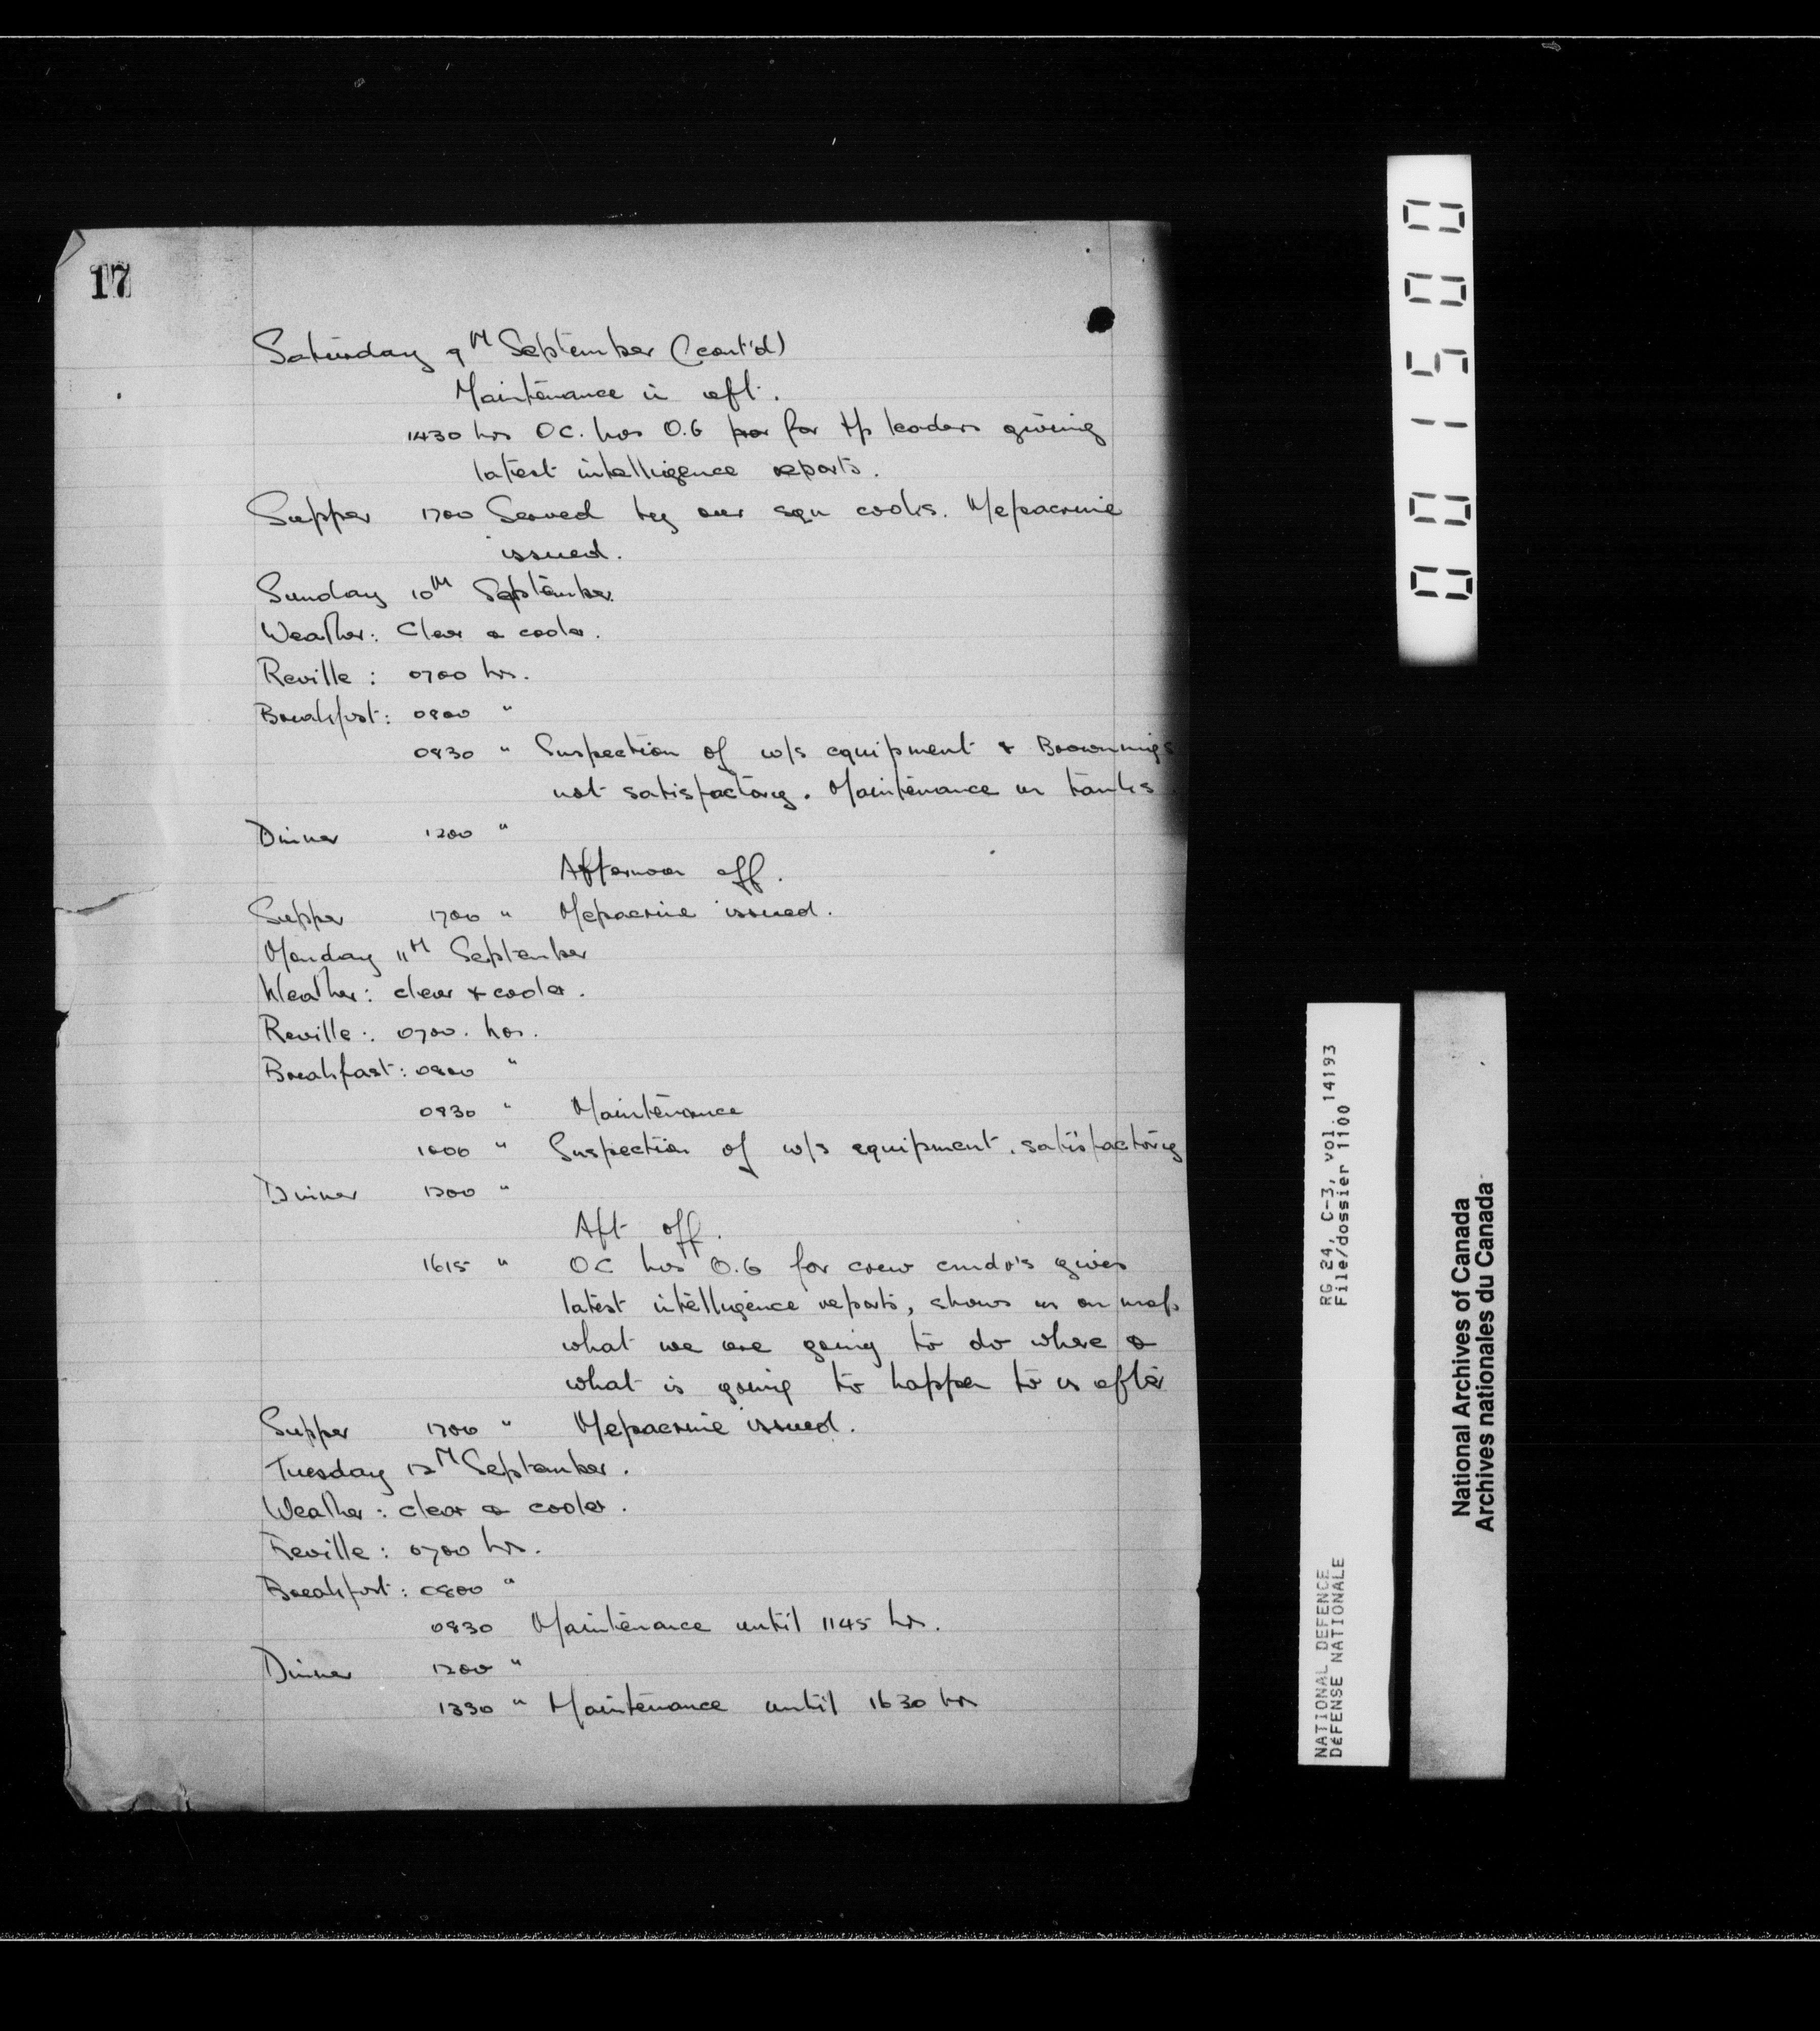 17
Saturday 9th September (cont'd)
Maintenance in aft.
1430 hrs OC. has O.G for tp leaders giving
latest intelligence reports.
Supper 1700 Served by our sqn cooks. Mepacrine
issued.
Sunday 10th September.
Weather: Clear & cooler.
Reville: 0700 hrs.
Breakfast: 0800 "
0830 " Inspection of w/s equipment & Brownings
not satisfactory. Maintenance on tanks.
Dinner 1200 "
Afternoon off.
Supper 1700 " Mepacrine issued.
Monday 11th September
Weather: clear & cooler.
Reville: 0700. hrs.
Breakfast: 0800 "
0830 " Maintenance
1000 " Inspection of w/s equipment. satisfactory
Dinner 1200 "
Aft off.
1615 " OC has O.G for crew cmdr's gives
latest intelligence reports, shows us on map
what we are going to do where &
what is going to happen to us after
Supper 1700 " Mepacrine issued.
Tuesday 12th September.
Weather: clear & cooler.
Reville: 0700 hrs.
Breakfast: 0800 "
0830 Maintenance until 1145 hrs.
Dinner 1200 "
1330 " Maintenance until 1630 hrs
001500
RG 24, C-3, vol. 14193
File/dossier 1100
NATIONAL DEFENCE
DÉFENSE NATIONALE
National Archives of Canada
Archives nationales du Canada